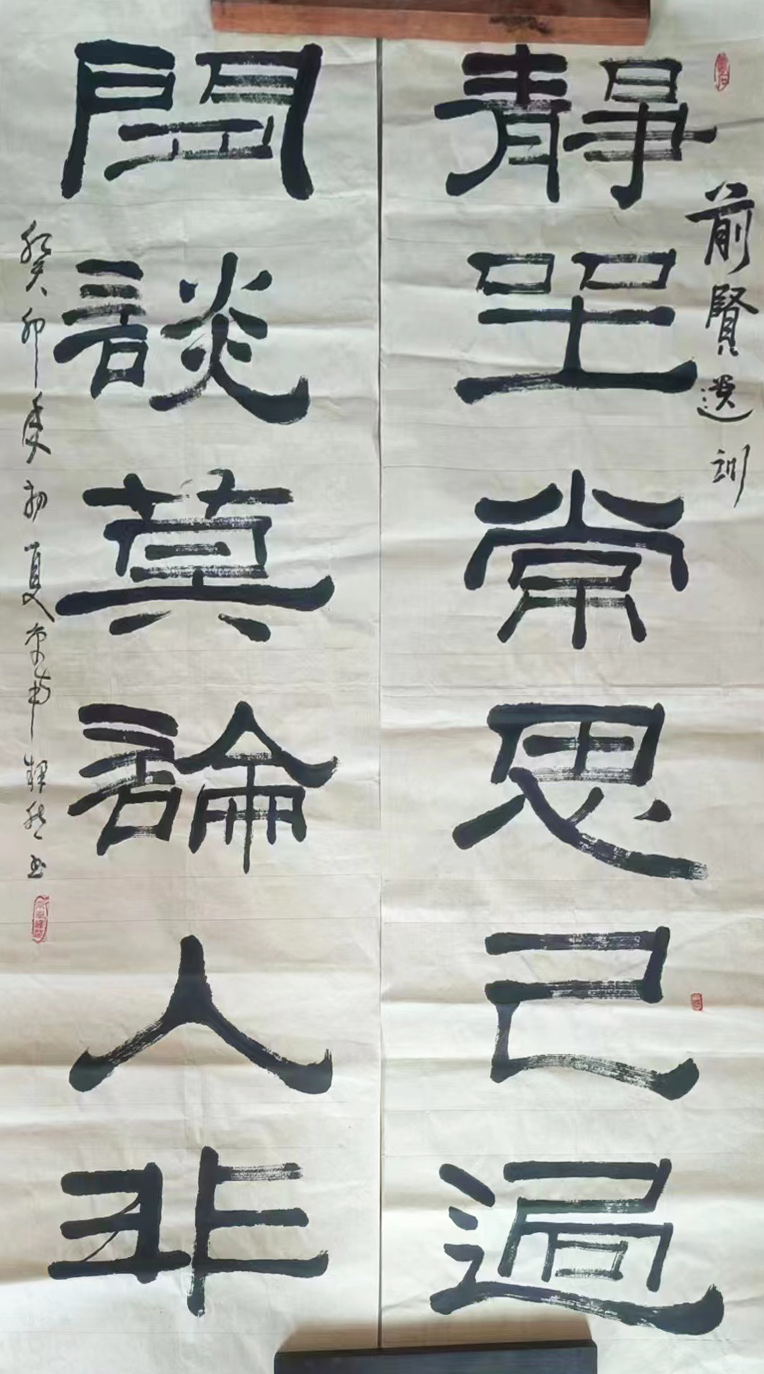 前賢遺訓
靜坐常思己過
閒談莫論人非
癸卯年初夏書